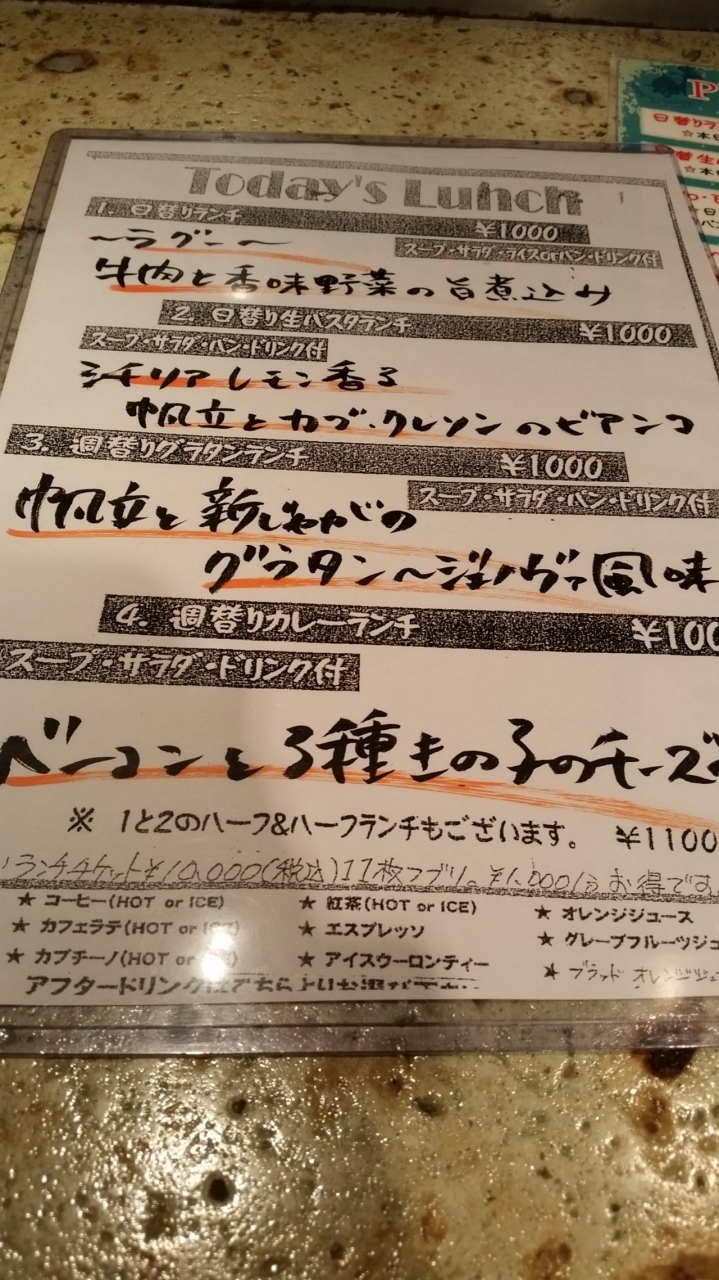 Today's Lunch
1. 日替りランチ ¥1000
スープ・サラダ・ライスorパン・ドリンク付
〜ラグー〜
牛肉と香味野菜の旨煮込み
2. 日替り生パスタランチ ¥1000
スープ・サラダ・パン・ドリンク付
シチリアレモン香る
帆立とカブ・クレソンのビアンコ
3. 週替りグラタンランチ ¥1000
スープ・サラダ・パン・ドリンク付
帆立と新じゃがの
グラタン〜ジェノヴァ風味
4. 週替りカレーランチ ¥100
スープ・サラダ・ドリンク付
ベーコンと3種きの子のチーズ
※ 1と2のハーフ&ハーフランチもございます。 ¥1100
ランチチケット¥10,000(税込)11枚つづり。¥1,000分お得です。
★ コーヒー(HOT or ICE) ★ 紅茶(HOT or ICE) ★ オレンジジュース
★ カフェラテ(HOT or ICE) ★ エスプレッソ ★ グレープフルーツジュ
★ カプチーノ(HOT or ICE) ★ アイスウーロンティー ★ ブラッドオレンジジュ
アフタードリンクは
P
日替りラ
☆本日
替生
☆本